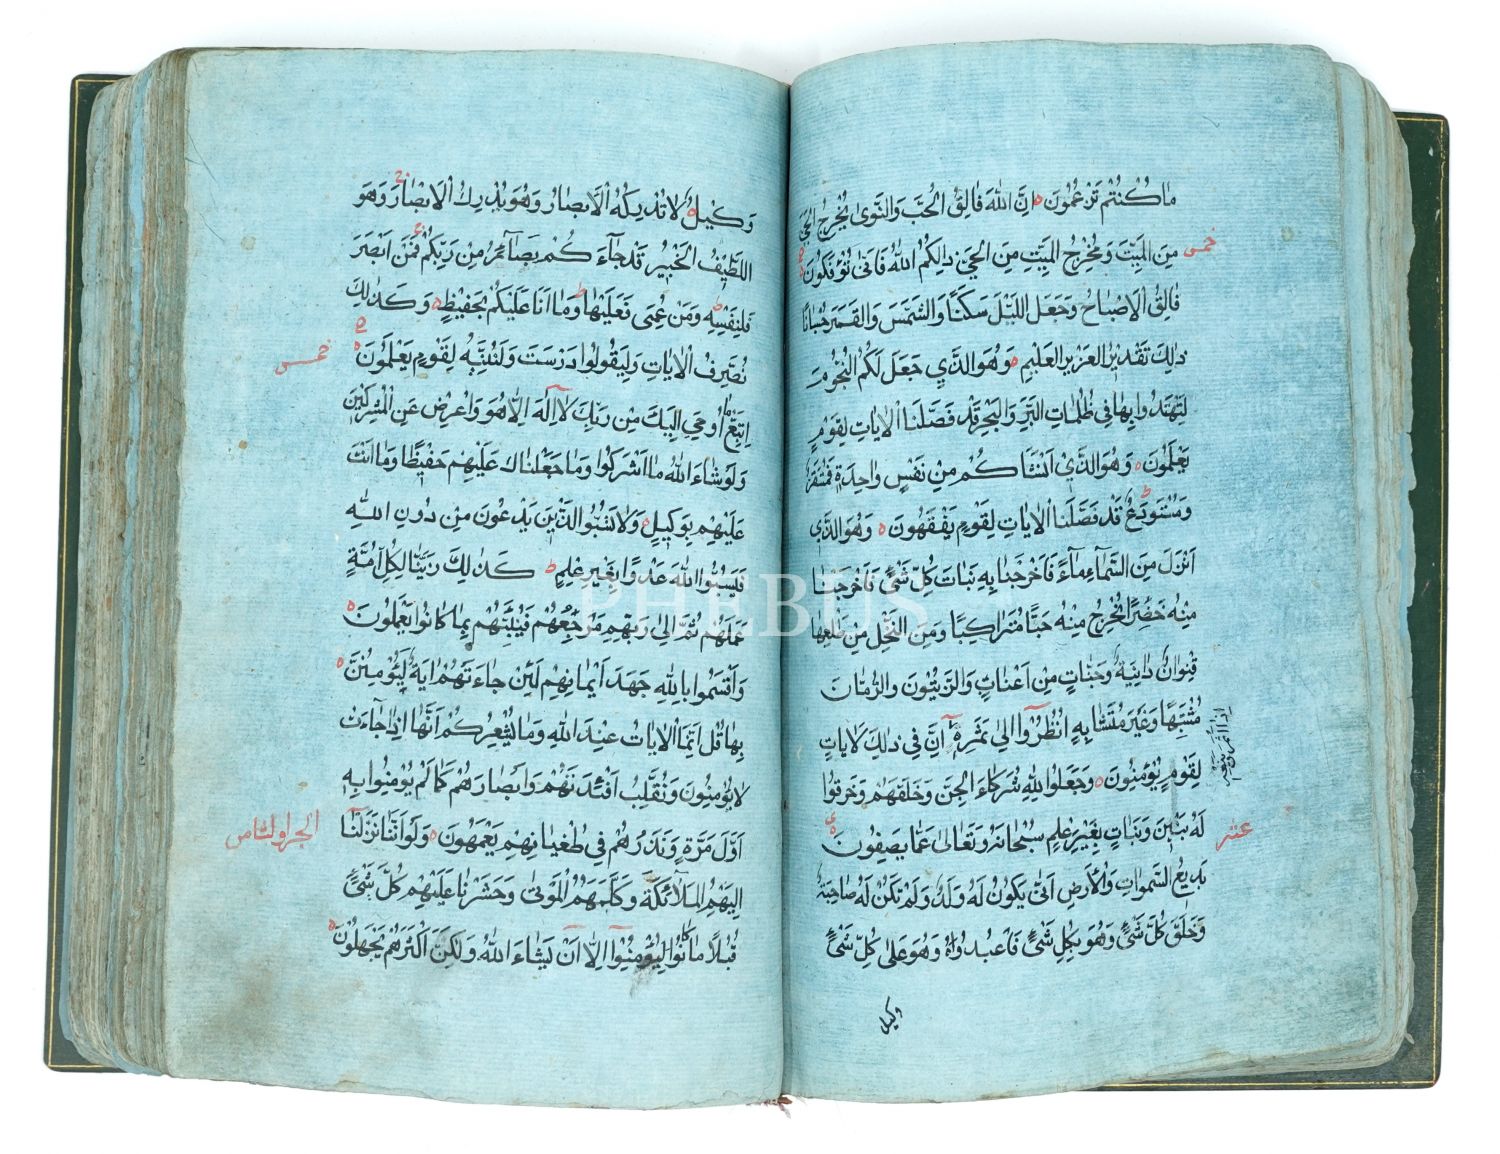 مَا كُنْتُمْ تَزْعُمُونَ اِنَّ اللّٰهَ فَالِقُ الْحَبِّ وَالنَّوٰى يُخْرِجُ الْحَيَّ
مِنَ الْمَيِّتِ وَمُخْرِجُ الْمَيِّتِ مِنَ الْحَيِّ ذٰلِكُمُ اللّٰهُ فَاَنّٰى تُؤْفَكُونَ
خمس
فَالِقُ الْاِصْبَاحِ وَجَعَلَ اللَّيْلَ سَكَنًا وَالشَّمْسَ وَالْقَمَرَ حُسْبَانًا
ذٰلِكَ تَقْدِيرُ الْعَزِيزِ الْعَلِيمِ وَهُوَ الَّذِي جَعَلَ لَكُمُ النُّجُومَ
لِتَهْتَدُوا بِهَا فِي ظُلُمَاتِ الْبَرِّ وَالْبَحْرِ قَدْ فَصَّلْنَا الْاٰيَاتِ لِقَوْمٍ
يَعْلَمُونَ وَهُوَ الَّذِي اَنْشَاَكُمْ مِنْ نَفْسٍ وَاحِدَةٍ فَمُسْتَقَرٌّ
وَمُسْتَوْدَعٌ قَدْ فَصَّلْنَا الْاٰيَاتِ لِقَوْمٍ يَفْقَهُونَ وَهُوَ الَّذِي
اَنْزَلَ مِنَ السَّمَاءِ مَاءً فَاَخْرَجْنَا بِهِ نَبَاتَ كُلِّ شَيْءٍ فَاَخْرَجْنَا
مِنْهُ خَضِرًا نُخْرِجُ مِنْهُ حَبًّا مُتَرَاكِبًا وَمِنَ النَّخْلِ مِنْ طَلْعِهَا
قِنْوَانٌ دَانِيَةٌ وَجَنَّاتٍ مِنْ اَعْنَابٍ وَالزَّيْتُونَ وَالرُّمَّانَ
مُشْتَبِهًا وَغَيْرَ مُتَشَابِهٍ اُنْظُرُوا اِلٰى ثَمَرِهِ اِنَّ فِي ذٰلِكَ لَاٰيَاتٍ
اِذَا اَثْمَرَ وَيَنْعِهِ
لِقَوْمٍ يُؤْمِنُونَ وَجَعَلُوا لِلّٰهِ شُرَكَاءَ الْجِنَّ وَخَلَقَهُمْ وَخَرَقُوا
لَهُ بَنِينَ وَبَنَاتٍ بِغَيْرِ عِلْمٍ سُبْحَانَهُ وَتَعَالٰى عَمَّا يَصِفُونَ
عشر
بَدِيعُ السَّمٰوَاتِ وَالْاَرْضِ اَنّٰى يَكُونُ لَهُ وَلَدٌ وَلَمْ تَكُنْ لَهُ صَاحِبَةٌ
وَخَلَقَ كُلَّ شَيْءٍ وَهُوَ بِكُلِّ شَيْءٍ فَاعْبُدُوهُ وَهُوَ عَلٰى كُلِّ شَيْءٍ
وكيل
وَكِيلٌ لَا تُدْرِكُهُ الْاَبْصَارُ وَهُوَ يُدْرِكُ الْاَبْصَارَ وَهُوَ
اللَّطِيفُ الْخَبِيرُ قَدْ جَاءَكُمْ بَصَائِرُ مِنْ رَبِّكُمْ فَمَنْ اَبْصَرَ
فَلِنَفْسِهِ وَمَنْ عَمِيَ فَعَلَيْهَا وَمَا اَنَا عَلَيْكُمْ بِحَفِيظٍ وَكَذٰلِكَ
نُصَرِّفُ الْاٰيَاتِ وَلِيَقُولُوا دَرَسْتَ وَلِنُبَيِّنَهُ لِقَوْمٍ يَعْلَمُونَ
خمس
اِتَّبِعْ مَا اُوحِيَ اِلَيْكَ مِنْ رَبِّكَ لَا اِلٰهَ اِلَّا هُوَ وَاَعْرِضْ عَنِ الْمُشْرِكِينَ
وَلَوْ شَاءَ اللّٰهُ مَا اَشْرَكُوا وَمَا جَعَلْنَاكَ عَلَيْهِمْ حَفِيظًا وَمَا اَنْتَ
عَلَيْهِمْ بِوَكِيلٍ وَلَا تَسُبُّوا الَّذِينَ يَدْعُونَ مِنْ دُونِ اللّٰهِ
فَيَسُبُّوا اللّٰهَ عَدْوًا بِغَيْرِ عِلْمٍ كَذٰلِكَ زَيَّنَّا لِكُلِّ اُمَّةٍ
عَمَلَهُمْ ثُمَّ اِلٰى رَبِّهِمْ مَرْجِعُهُمْ فَيُنَبِّئُهُمْ بِمَا كَانُوا يَعْمَلُونَ
وَاَقْسَمُوا بِاللّٰهِ جَهْدَ اَيْمَانِهِمْ لَئِنْ جَاءَتْهُمْ اٰيَةٌ لَيُؤْمِنُنَّ
بِهَا قُلْ اِنَّمَا الْاٰيَاتُ عِنْدَ اللّٰهِ وَمَا يُشْعِرُكُمْ اَنَّهَا اِذَا جَاءَتْ
لَا يُؤْمِنُونَ وَنُقَلِّبُ اَفْئِدَتَهُمْ وَاَبْصَارَهُمْ كَمَا لَمْ يُؤْمِنُوا بِهِ
اَوَّلَ مَرَّةٍ وَنَذَرُهُمْ فِي طُغْيَانِهِمْ يَعْمَهُونَ وَلَوْ اَنَّنَا نَزَّلْنَا
الجزؤ الثامن
اِلَيْهِمُ الْمَلٰئِكَةَ وَكَلَّمَهُمُ الْمَوْتٰى وَحَشَرْنَا عَلَيْهِمْ كُلَّ شَيْءٍ
قُبُلًا مَا كَانُوا لِيُؤْمِنُوا اِلَّا اَنْ يَشَاءَ اللّٰهُ وَلٰكِنَّ اَكْثَرَهُمْ يَجْهَلُونَ
PHEBUS